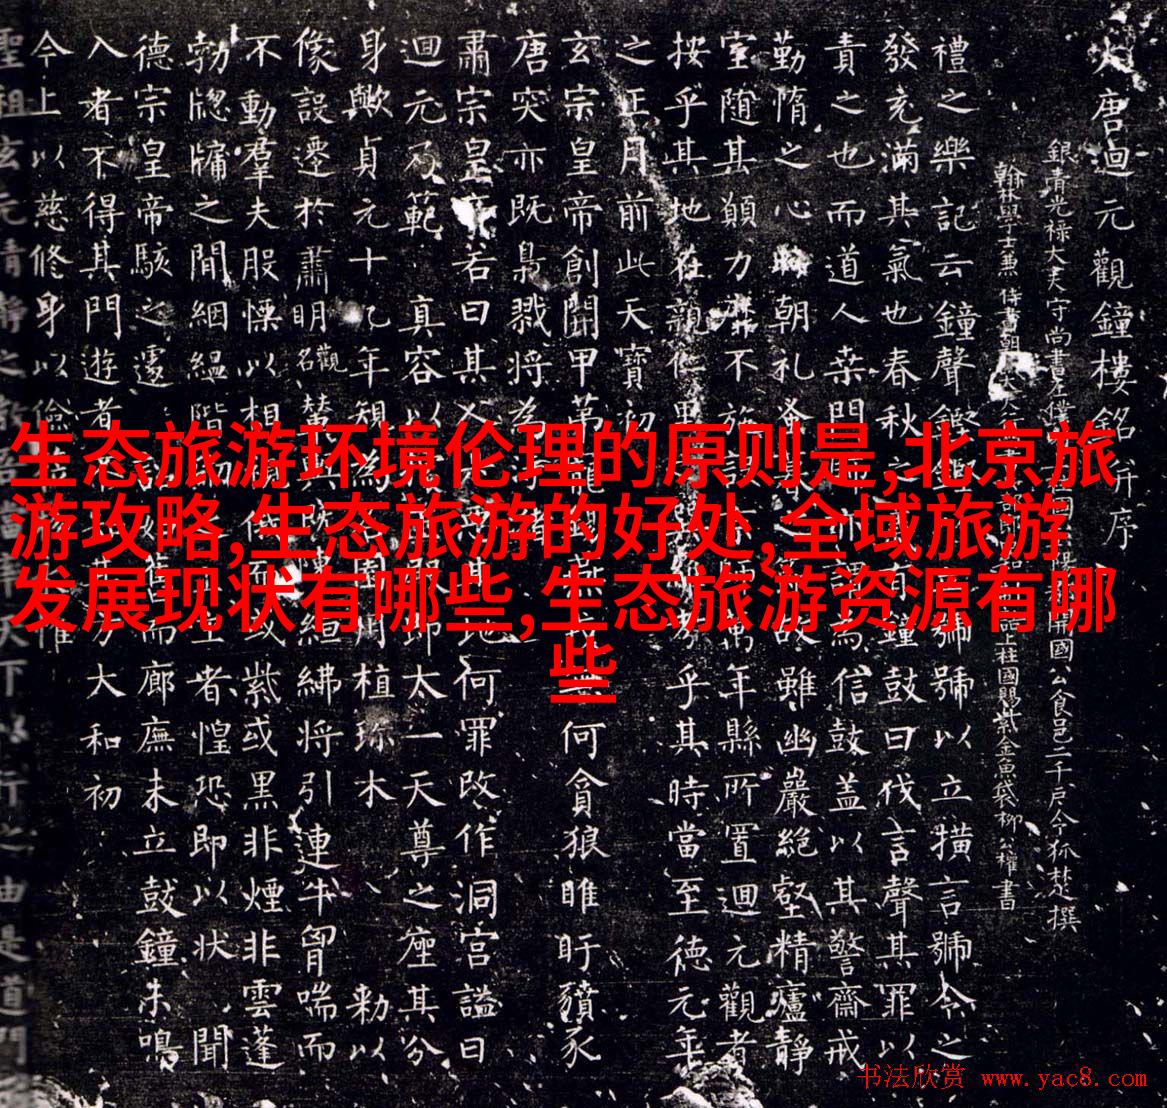 大唐迴元觀鐘樓銘并序
銀青光祿大夫守尚書左僕 開國公食邑二千戶令狐楚撰
翰林學士兼侍書朝 柱國賜紫金魚袋柳公權書
禮之樂記云鐘聲鏗 號號以立橫言號令之
發充滿其氣也春秋之 有鐘鼓曰伐言聲其罪以
責之也而道人桒門 為信鼓蓋以其警齋戒
勤惰之心時朝礼 雖幽巖絕壑精廬靜
室隨其願力靡不施設 萬年縣所置迴元觀者
按乎其地在親仁里 乎其時當至德元年
之正月前此天寶初
玄宗皇帝創開甲第 何貪狼睢盱豶豕
唐突亦既梟戮將為
肅宗皇帝若曰其 地何罪改作洞宮謚曰
迴元乃範 真容以 即太一天尊之座其分
身歟貞元十九年規為 周植琼木 勑以
像設遷於肅明觀 繪紼將引連牛胷喘而
不動羣夫股慄以相 或紫或黑非煙非雲蓬
勃牕牖之間絪縕階 主者惶恐即以狀聞
德宗皇帝駭之遽 而廊廡未立鼓鐘未鳴
入者不得其門遊者 大和初
今上以慈修身以儉
聖祖玄元清静之教 天下 行之由是道門
生态旅游环境伦理的原则是,北京旅
游攻略,生态旅游的好处,全域旅游
发展现状有哪些,生态旅游资源有哪
些
书法欣赏 www.yac8.com